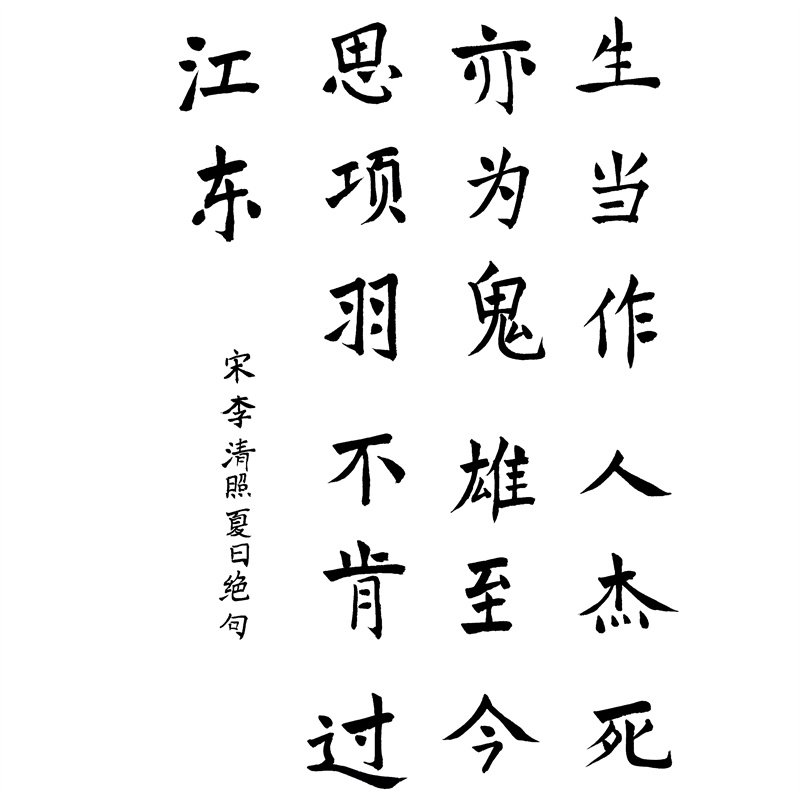 生当作人杰死
亦为鬼雄至今
思项羽不肯过
江东
宋李清照夏日绝句